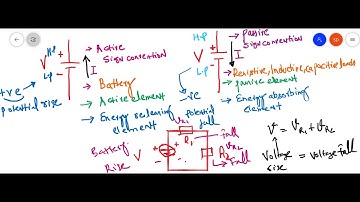 H.P
V
+
-
I
L.P
→ Active
Sign convention
→ Battery
→ Active element
→ Energy releasing
element
+ve
potential rise
H.P
V
+
-
I
L.P
→ Passive
Sign convention
→ Resistive, Inductive, capacitive loads
→ passive element
→ Energy absorbing
element
-ve
potential
fall
Battery
Rise
V
+
-
VR1
R1
fall
R2
VR2
→ Fall
V = VR1 + VR2
Voltage = voltage fall
rise
SD